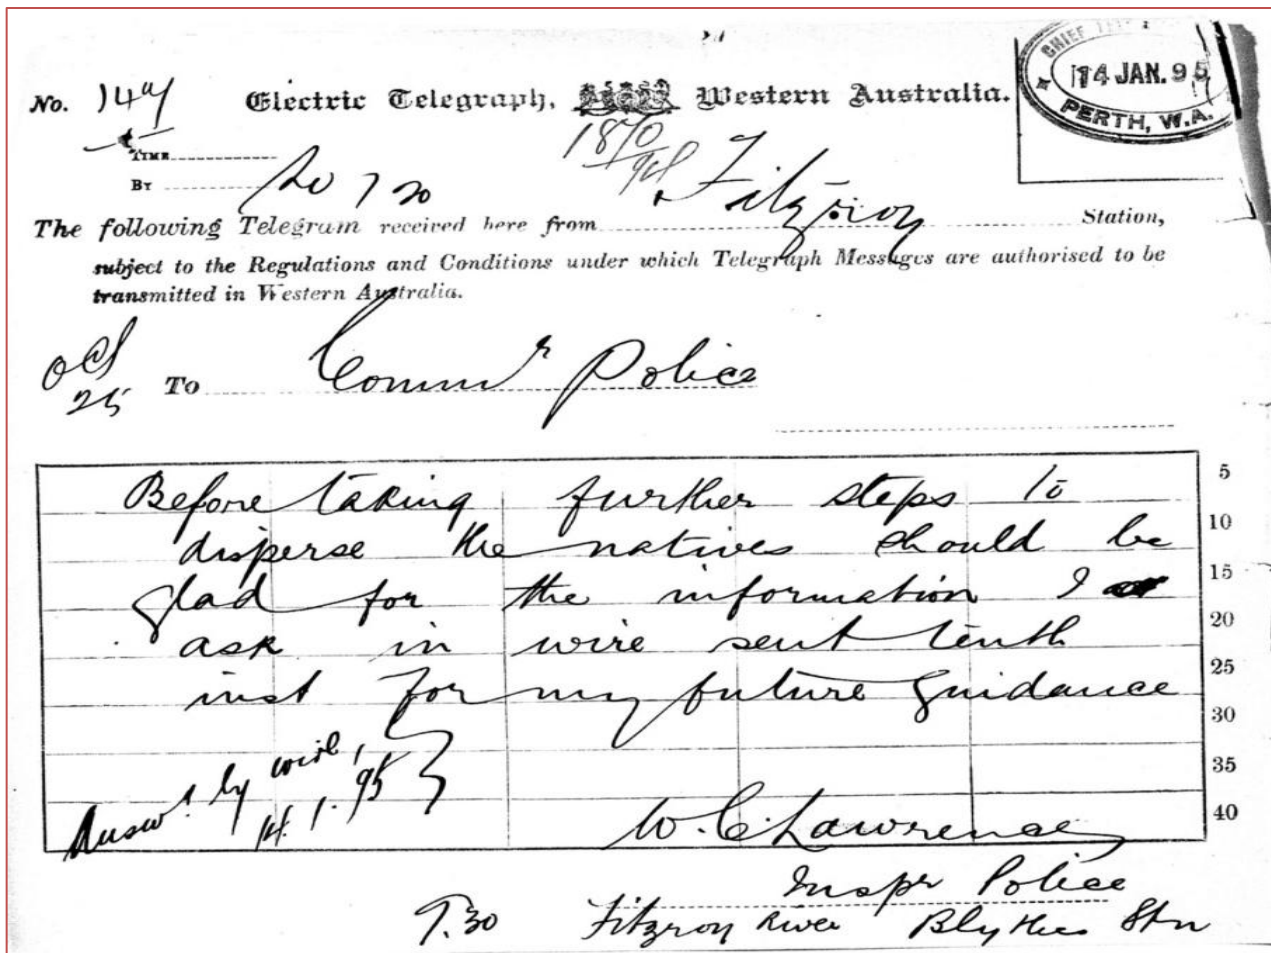 No.
Electric Telegraph, Western Australia.
CHIEF
14 JAN. 95
PERTH, W.A.
TIME
1870/94
BY
7 20
The following Telegram received here from Fitzroy Station,
subject to the Regulations and Conditions under which Telegraph Messages are authorised to be
transmitted in Western Australia.
25
To Commr Police
Before taking further steps to
disperse the natives should be
glad for the information I
ask in wire sent tenth
inst for my future guidance
5
10
15
20
25
30
35
40
Answd. by wire,
14.1.95
W. C. Lawrence
Inspr Police
9.30 Fitzroy River Blythes Stn